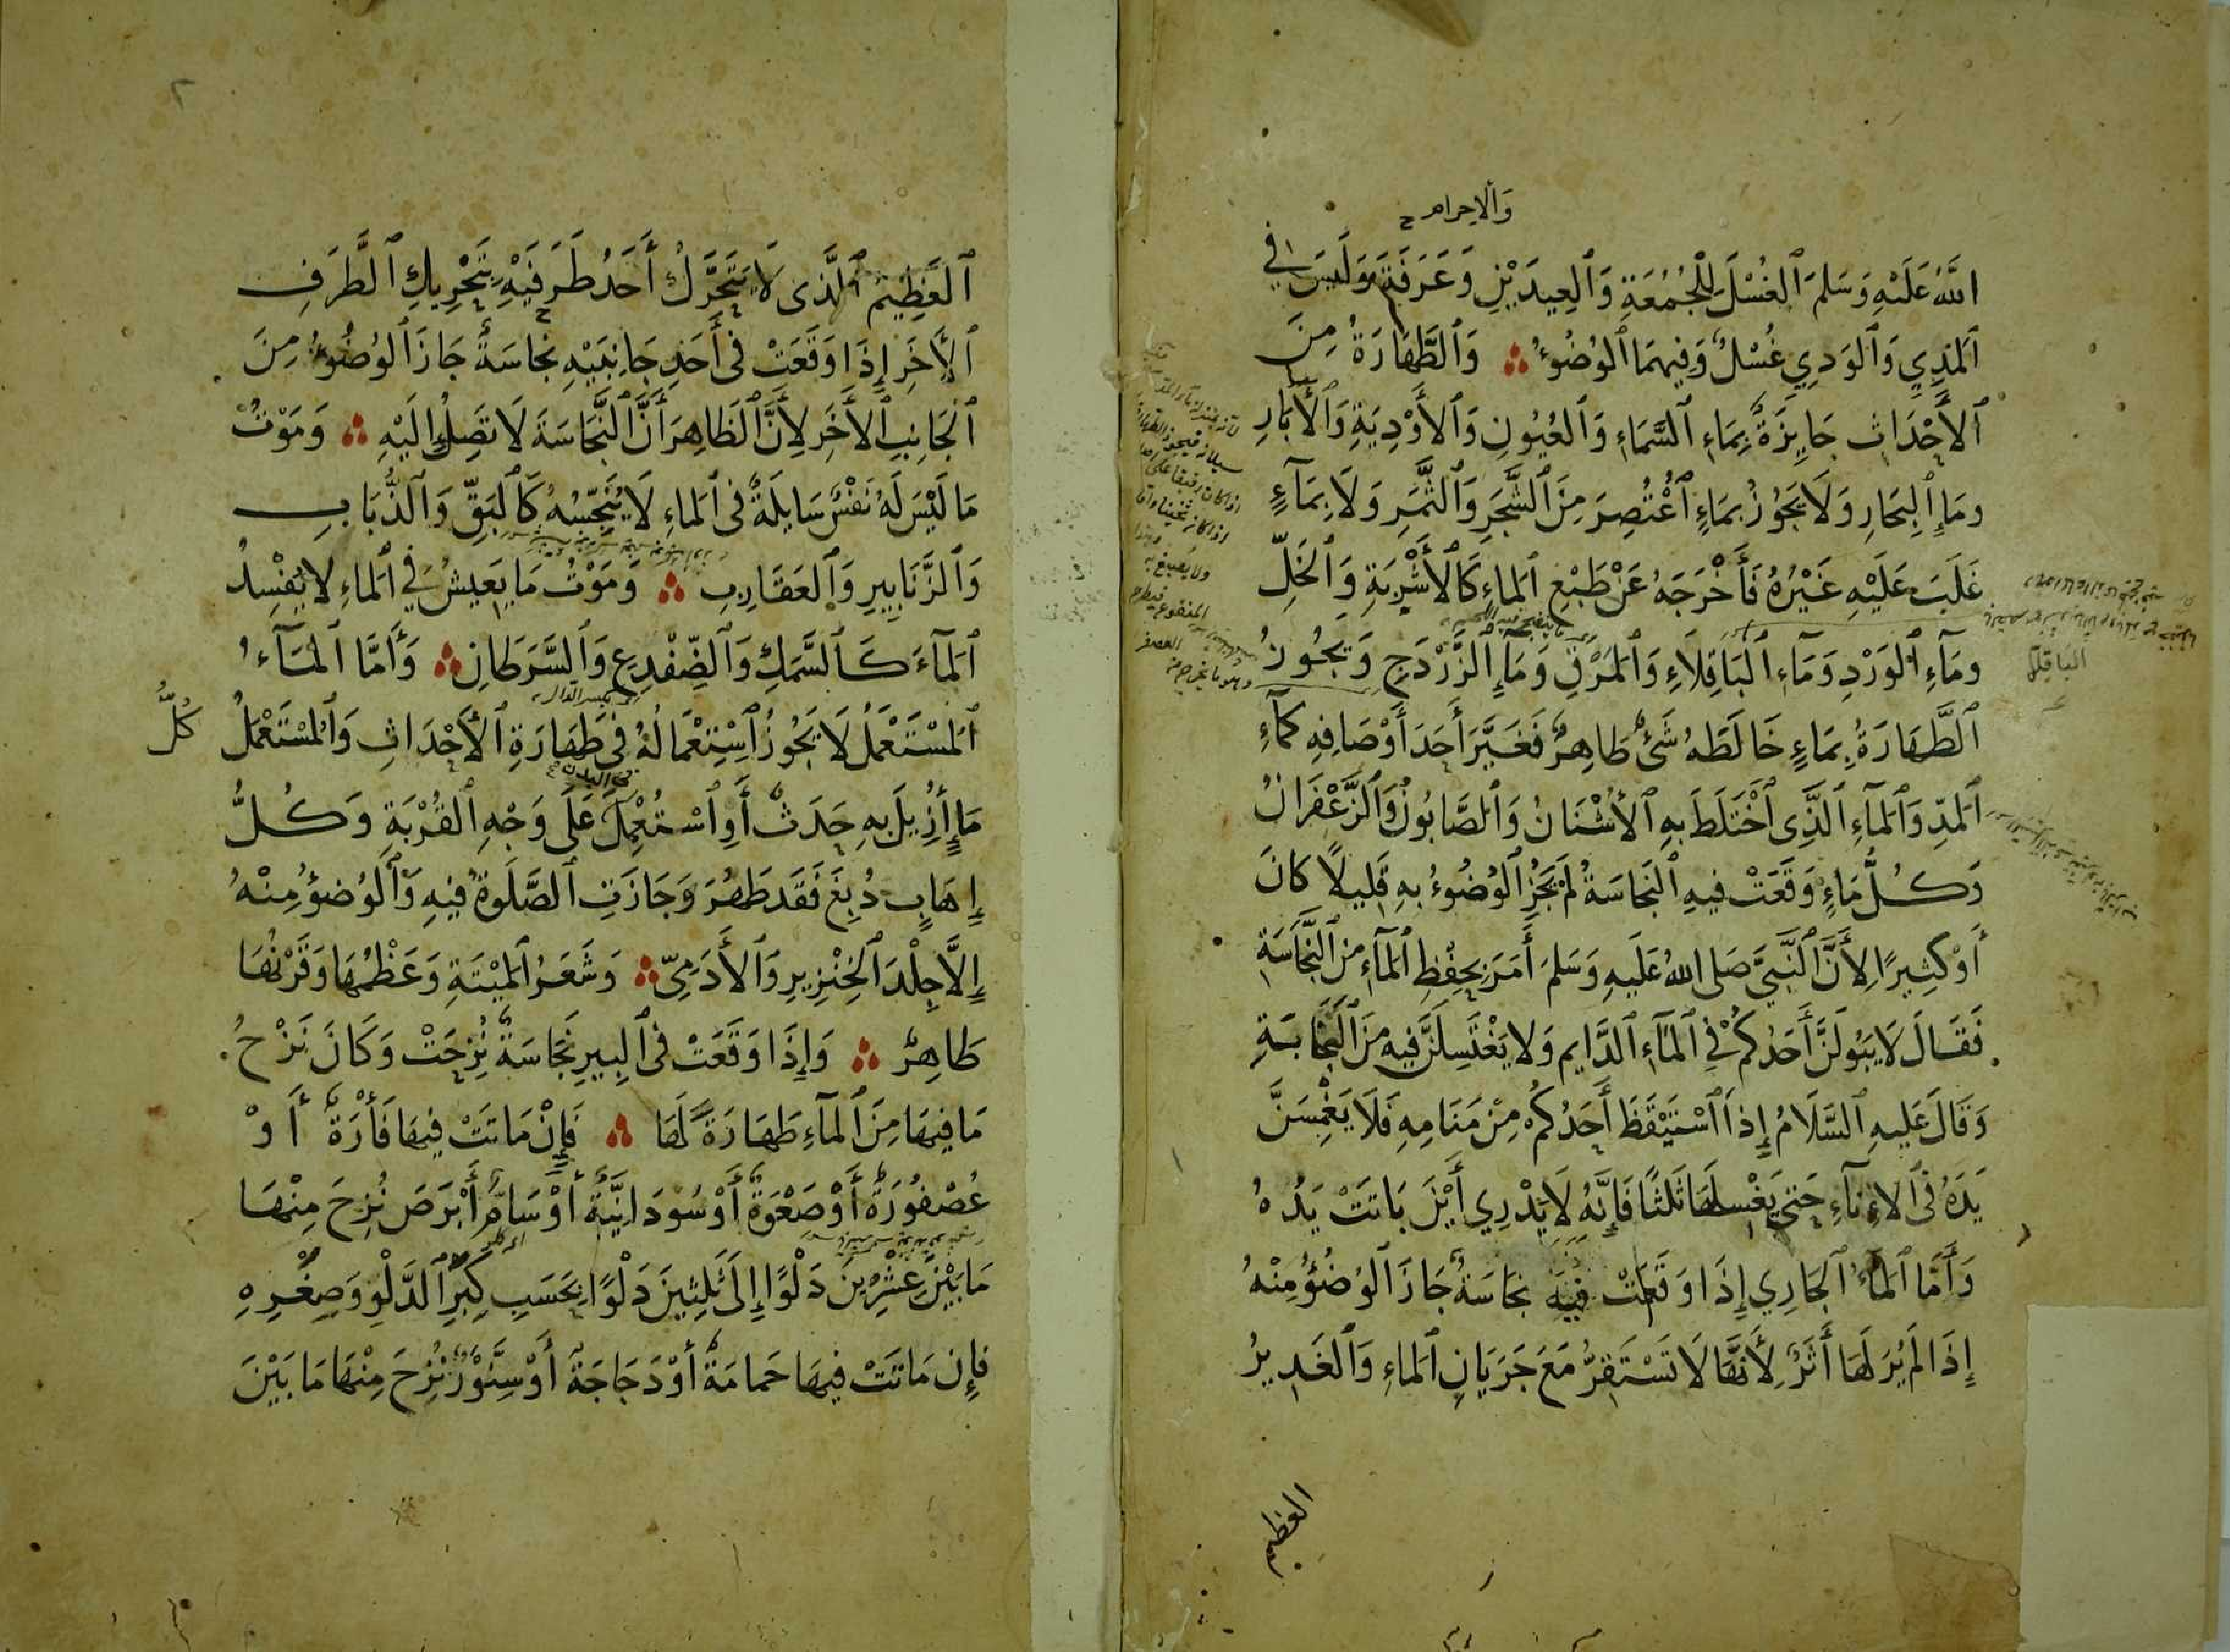 والاحرام
اللّٰهُ عَلَيْهِ وَسَلمَ ٱلغُسْلَ لِلْجُمُعَةِ وَٱلعِيدَيْنِ وَعَرَفَةَ وَلَيسَ فِي
ٱلمَذِيِ وَٱلوَدِيِ غُسْلٌ وَفِيهِمَا ٱلوُضُوءُ ۞ وَٱلطَّهَارَةُ مِنَ
ٱلأَحْدَاثِ جَايِزَةٌ بِمَاءِ ٱلسَّمَاءِ وَٱلعُيُونِ وَٱلأَوْدِيَةِ وَٱلأٰبَارِ
ومَاءِ ٱلبِحَارِ وَلَا يَجُوْزُ بِمَاءٍ ٱعْتُصِرَ مِنَ ٱلشَّجَرِ وَٱلثَّمَرِ وَلَا بِمَآءٍ
غَلَبَ عَلَيْهِ غَيْرُهُ فَأَخْرَجَهُ عَنْ طَبْعِ ٱلمَاءِ كَٱلأَشْرِبَةِ وَٱلخَلِّ
ومَآءِ ٱلوَرْدِ وَمَآءِ ٱلبَاقِلَاءِ وَٱلمَرَقِ وَمَاءِ ٱلزَّرْدَجِ وَيَجُوزُ
الباقلَّى
ٱلطَّهَارَةُ بِمَاءٍ خَالَطَهُ شَىْءٌ طَاهِرٌ فَغَيَّرَ أَحَدَ أَوْصَافِهِ كَمَآءِ
ٱلمَدِّ وَٱلمَآءِ ٱلَّذِى ٱخْتَلَطَ بِهِ ٱلأُشْنَانُ وَٱلصَّابُونُ وَٱلزَّعْفَرَانُ
وَكُلُّ مَاءٍ وَقَعَتْ فِيهِ ٱلنَجَاسَةُ لَمْ يَجُزِ ٱلوُضُوءُ بِهِ قَلِيلًا كَانَ
أَوْ كَثِيرًا لِأَنَّ ٱلنَّبِيَّ صَلى اللهُ عَلَيهِ وَسَلمَ أَمَرَ بِحِفْظِ ٱلمَآءِ مِنَ ٱلنَّجَاسَةِ
فَقَالَ لَا يَبُولَنَّ أَحَدُكُمْ فِي ٱلمَآءِ ٱلدَّايِمِ وَلا يَغْتَسِلَنَّ فِيهِ مِنَ ٱلجَنَابَةِ
وَقَالَ عَلَيهِ ٱلسَّلَامُ إِذَا ٱسْتَيْقَظَ أَحَدُكُمْ مِنْ مَنَامِهِ فَلَا يَغْمِسَنَّ
يَدَهُ فى ٱلاِنَآءِ حَتى يَغْسِلَهَا ثَلٰثًا فَإِنَّهُ لَا يَدْرِي أَيْنَ بَاتَتْ يَدُهُ
وَأَمَّا ٱلمَآءُ ٱلجَارِي إِذَا وَقَعَتْ فِيهِ نجَاسَةٌ جَازَ ٱلوُضُوءُ مِنْهُ
إِذَا لَمْ يُرَ لَهَا أَثَرٌ لِأَنَّهَا لَا تَسْتَقِرُّ مَعَ جَرَيَانِ ٱلمَاءِ وَٱلغَدِيرُ
العظيم
٢
ٱلعَظِيمُ ٱلَّذى لَا يَتَحَرَّكُ أَحَدُ طَرَفَيْهِ بِتَحْرِيكِ ٱلطَّرَفِ
ٱلأٰخَرِ إِذَا وَقَعَتْ فى أَحَدِ جَانِبَيْهِ نجَاسَةٌ جَازَ ٱلوُضُوءُ مِنَ
ٱلجَانِبِ ٱلأٰخَرِ لِأَنَّ ٱلظَاهِرَ أَنَّ ٱلنَّجَاسَةَ لَا تَصِلُ إِلَيْهِ ۞ وَمَوْتُ
مَا لَيْسَ لَهُ نَفْسٌ سَايِلَةٌ فى ٱلمَاءِ لَا يُنَجِّسُهُ كَٱلبَقِّ وَٱلذُّبَابِ
وَٱلزَّنَابِيرِ وَٱلعَقَارِبِ ۞ وَمَوْتُ مَا يَعِيشُ فِي ٱلمَاءِ لا يُفْسِدُ
ٱلمَآءَ كَٱلسَّمَكِ وَٱلضِّفْدِعِ وَٱلسَّرَطَانِ ۞ وَأَمَّا ٱلمَآءُ
بكسر الدال
ٱلمُسْتَعْمَلُ لَا يَجُوزُ ٱسْتِعْمَالُهُ فى طَهَارَةِ ٱلأَحْدَاثِ وَٱلمُسْتَعْمَلُ كُلُّ
فى البدن
مَاءٍ أُزِيلَ بِهِ حَدَثٌ أَوِ ٱسْتُعْمِلَ عَلَى وَجْهِ ٱلقُرْبَةِ وَكُلُّ
إِهَابٍ دُبِغَ فَقَد طَهُرَ وَجَازَتِ ٱلصَّلَوةُ فيهِ وَٱلوُضوُءُ مِنْهُ
إِلَّا جِلْدَ ٱلخِنْزِيرِ وَٱلأٰدَمِيِّ ۞ وَشَعَرُ ٱلمَيْتَةِ وَعَظْمُهَا وَقَرْنُهَا
طَاهِرٌ ۞ وَإِذَا وَقَعَتْ فى ٱلبِيرِ نَجَاسَةٌ نُزِحَتْ وَكَانَ نَزْحُ
مَا فِيهَا مِنَ ٱلمآءِ طَهَارَةً لَهَا ۞ فَإِنْ مَاتَتْ فِيهَا فَأْرَةٌ أَوْ
عُصْفُورَةٌ أَوْ صَعْوَةٌ أَوْ سُودَانِيَّةٌ أَوْ سَامُّ أَبْرَصَ نُزِحَ مِنْهَا
مَا بَيْنَ عِشْرِينَ دَلْوًا إِلَى ثَلٰثِينَ دَلْوًا بِحَسَبِ كِبَرِ ٱلدَّلْوِ وَصِغَرِهِ
فَإِن مَاتَتْ فِيهَا حَمَامَةٌ أَوْ دَجَاجَةٌ أَوْ سِنَّوْرٌ نُزِحَ مِنْهَا مَا بَيْنَ